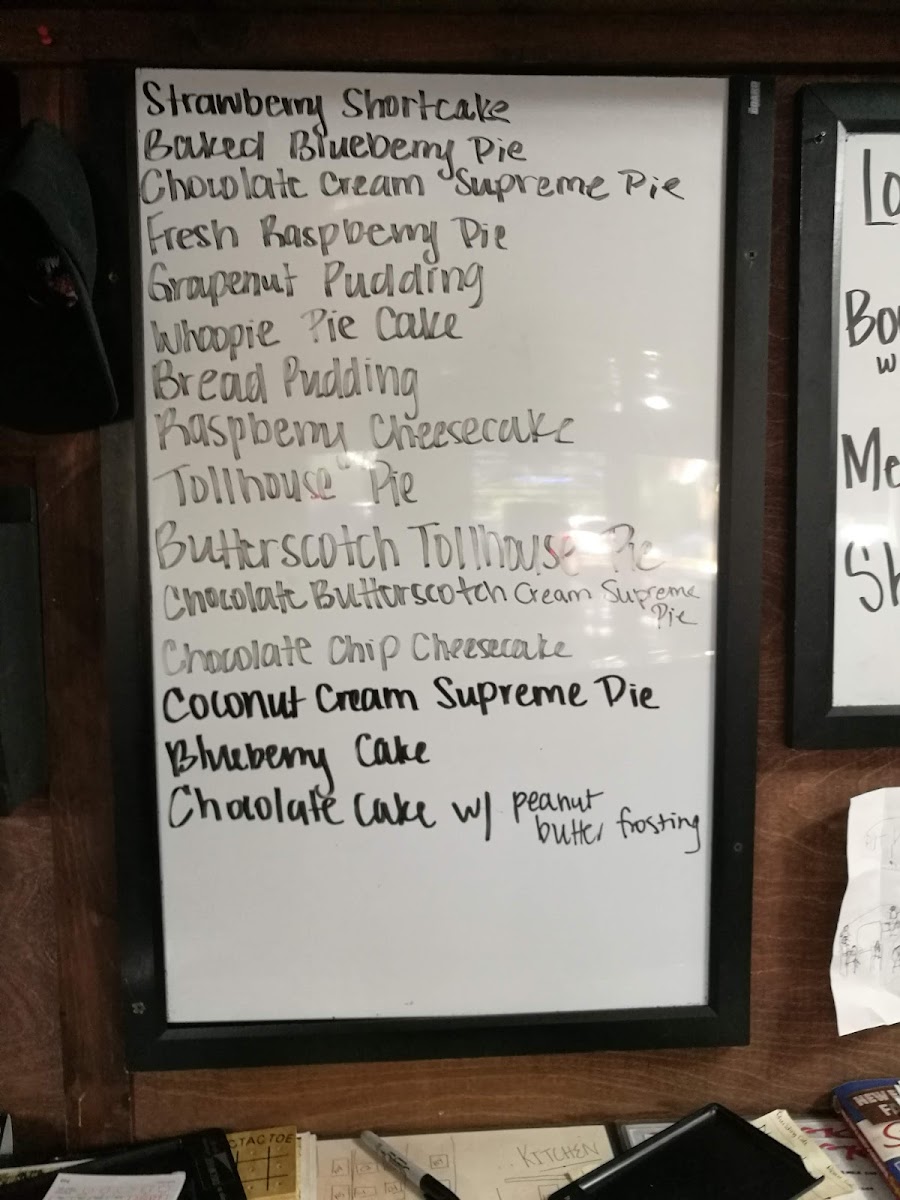 Strawberry Shortcake
Baked Blueberry Pie
Chocolate Cream Supreme Pie
Fresh Raspberry Pie
Grapenut Pudding
Whoopie Pie Cake
Bread Pudding
Raspberry Cheesecake
"Tollhouse" Pie
Butterscotch Tollhouse Pie
Chocolate Butterscotch Cream Supreme
Pie
Chocolate Chip Cheesecake
Coconut Cream Supreme Pie
Blueberry Cake
Chocolate Cake w/ peanut
butter frosting
Lo
Bo
w
Me
Sh
TACTOE
KITCHEN
NEW